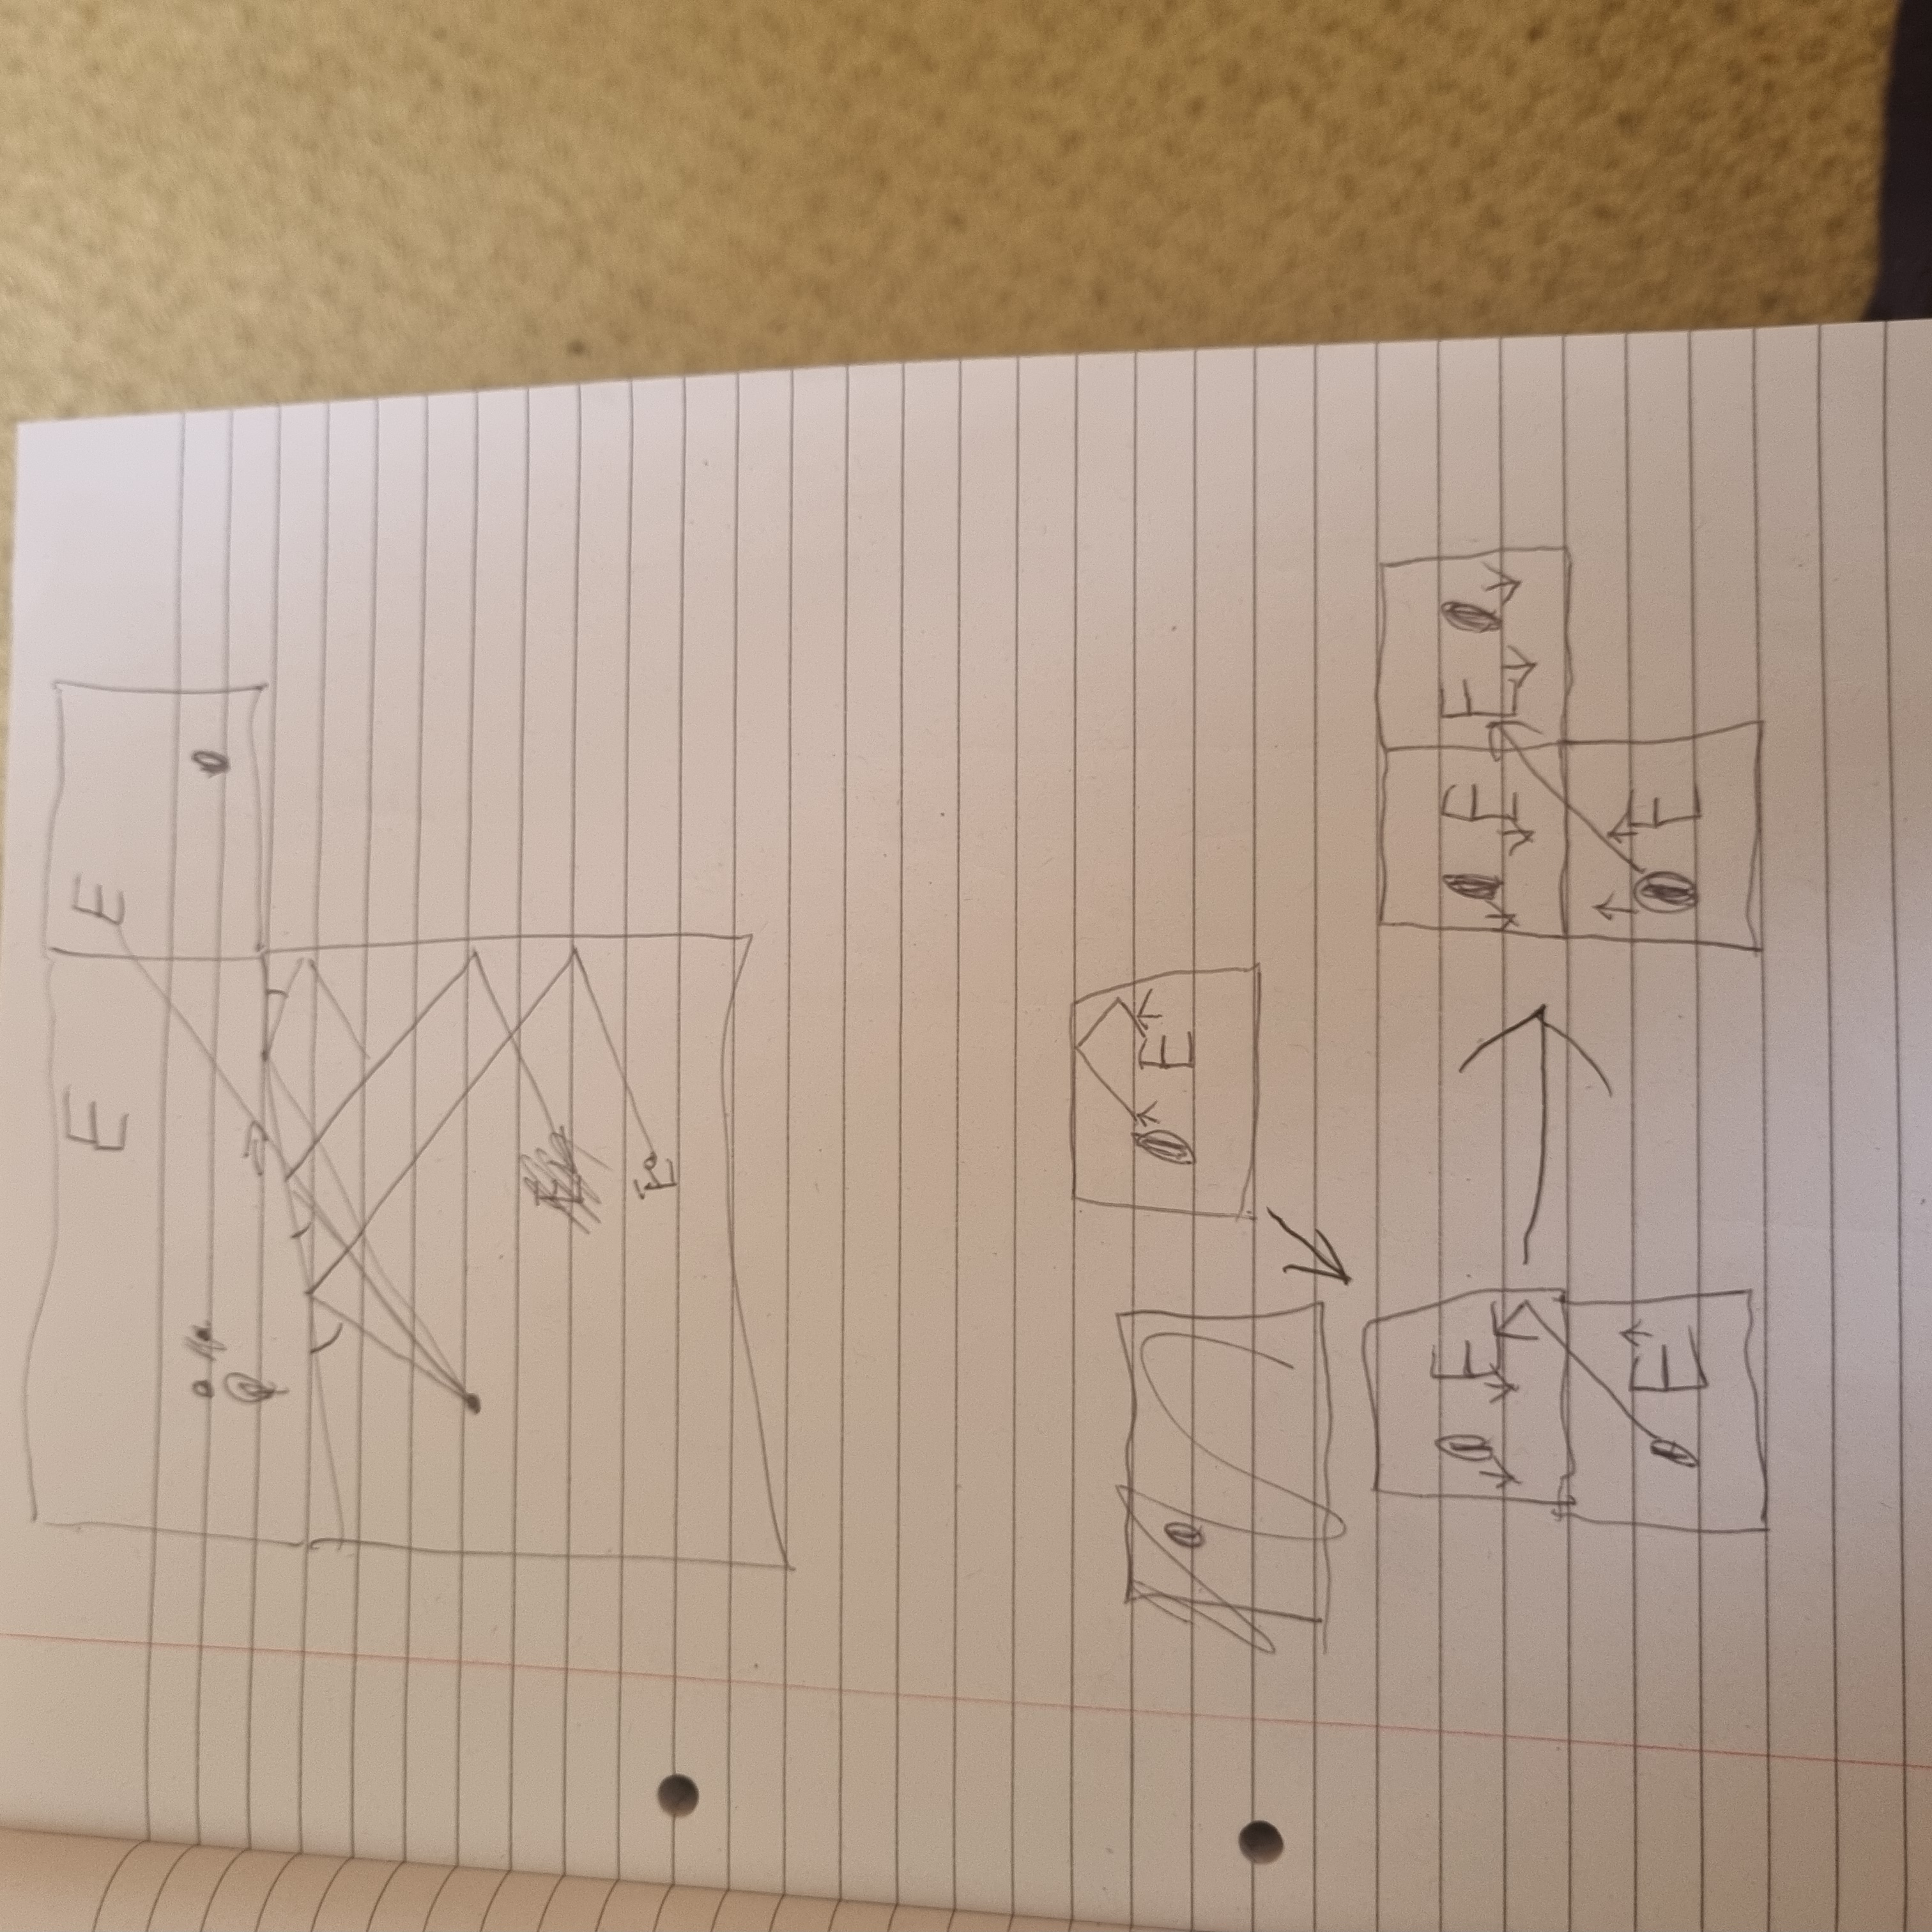 E E
E
E
E E E
E E